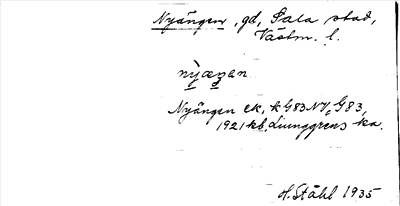 Nyängen, gd, Sala stad,
Västm. l.
nyæŋen
Nyängen ek, k G83NV, G83,
1921 kb. Ljunggrens ka.
H. Ståhl 1935